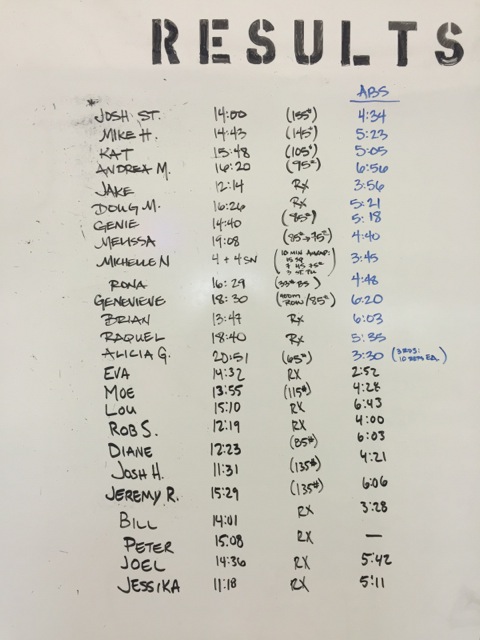 RESULTS
ABS
JOSH ST. 14:00 (155#) 4:34
MIKE H. 14:43 (145#) 5:23
KAT 15:48 (105#) 5:05
ANDREA M. 16:20 (95#) 6:56
JAKE 12:14 RX 3:56
DOUG M. 16:26 RX 5:21
GENIE 14:40 (85#) 5:18
MELISSA 19:08 (85#→75#) 4:40
MICHELLE N 4 + 4 SN (10 MIN AMRAP: 3:45
RONA 16:29 (33# BS) 4:48
GENEVIEVE 18:30 (400M ROW/85#) 6:20
BRIAN 13:47 RX 6:03
RAQUEL 18:40 RX 5:35
ALICIA G. 20:51 (65#) 3:30 (3 RDS: 10 REPS EA.)
EVA 14:32 RX 2:52
MOE 13:55 (115#) 4:28
LOU 15:10 RX 6:43
ROB S. 12:19 RX 4:00
DIANE 12:23 (85#) 6:03
JOSH H. 11:31 (135#) 4:21
JEREMY R. 15:29 (135#) 6:06
BILL 14:01 RX 3:28
PETER 15:08 RX —
JOEL 14:36 RX 5:42
JESSIKA 11:18 RX 5:11